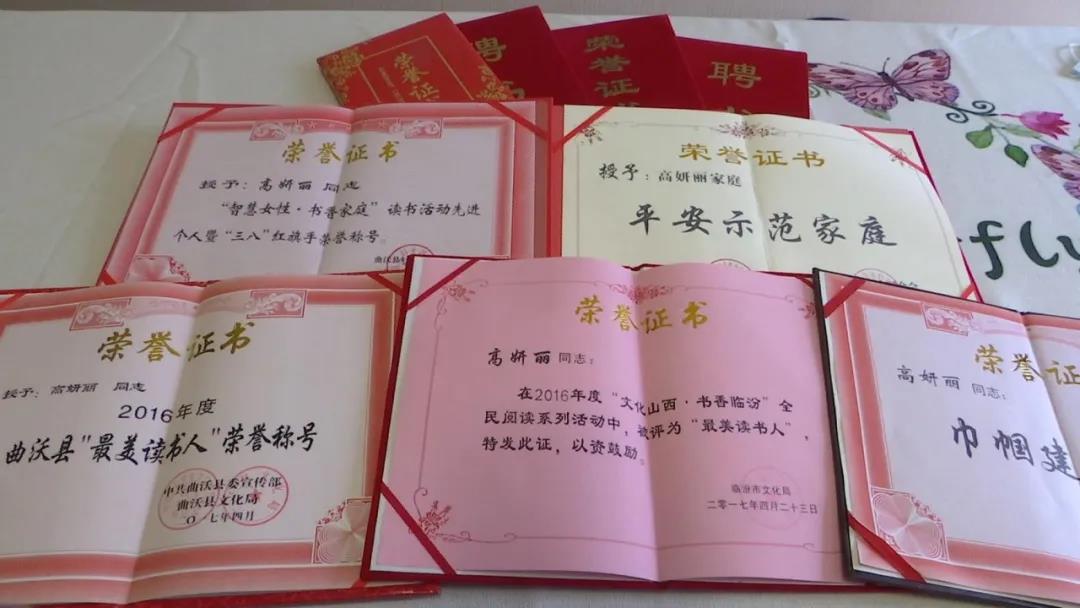 荣誉证
聘书
荣誉证书
聘书
荣誉证书
授予：高妍丽 同志
“智慧女性·书香家庭”读书活动先进
个人暨“三八”红旗手荣誉称号。
曲沃县
荣誉证书
授予：高妍丽家庭
平安示范家庭
fly
荣誉证书
授予：高妍丽 同志
2016年度
曲沃县"最美读书人"荣誉称号
中共曲沃县委宣传部
曲沃县文化局
二〇一七年四月
荣誉证书
高妍丽 同志：
在2016年度“文化山西·书香临汾”全
民阅读系列活动中，被评为“最美读书人”，
特发此证，以资鼓励。
临汾市文化局
二零一七年四月二十三日
荣誉证
高妍丽 同志：
巾帼建